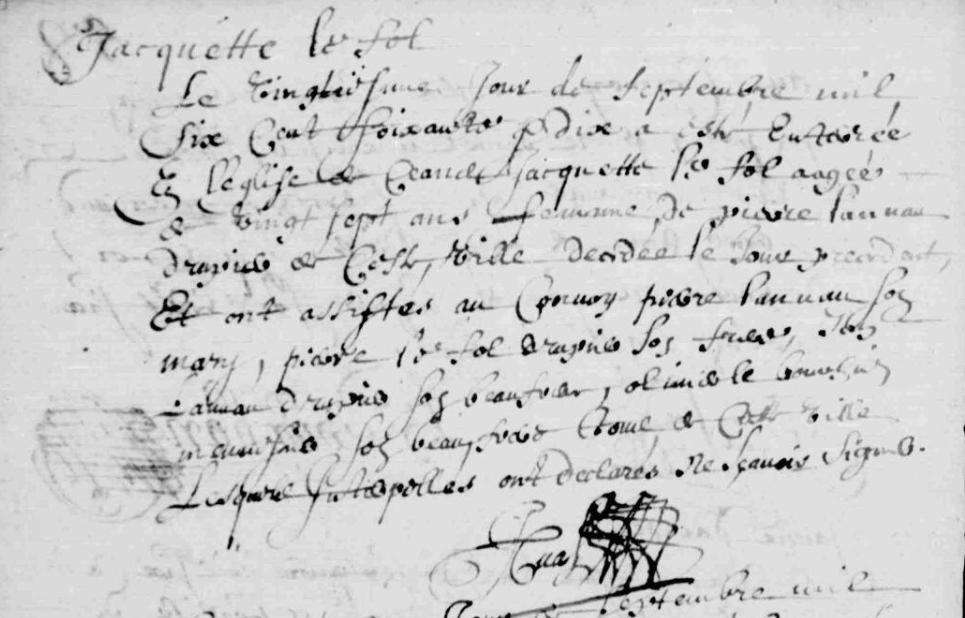 Jacquette le fol
Le vingtiesme Jour de septembre mil
six Cent soixante & dix a esté Enterrée
En l'eglise de Ceans Jacquette le fol aagée
de vingt sept ans femme de pierre Lannau
drapier de Ceste ville decedée le Jour precedant,
Et ont assistes au Convoy pierre Lannau son
mary, pierre le fol drapier son frere,
Lannau drapier son beaufrere, olivier le
menuisier son beaufrere tous de Ceste ville
Lesquels Interpelles ont declarés Ne sçavoir signer.
septembre mil